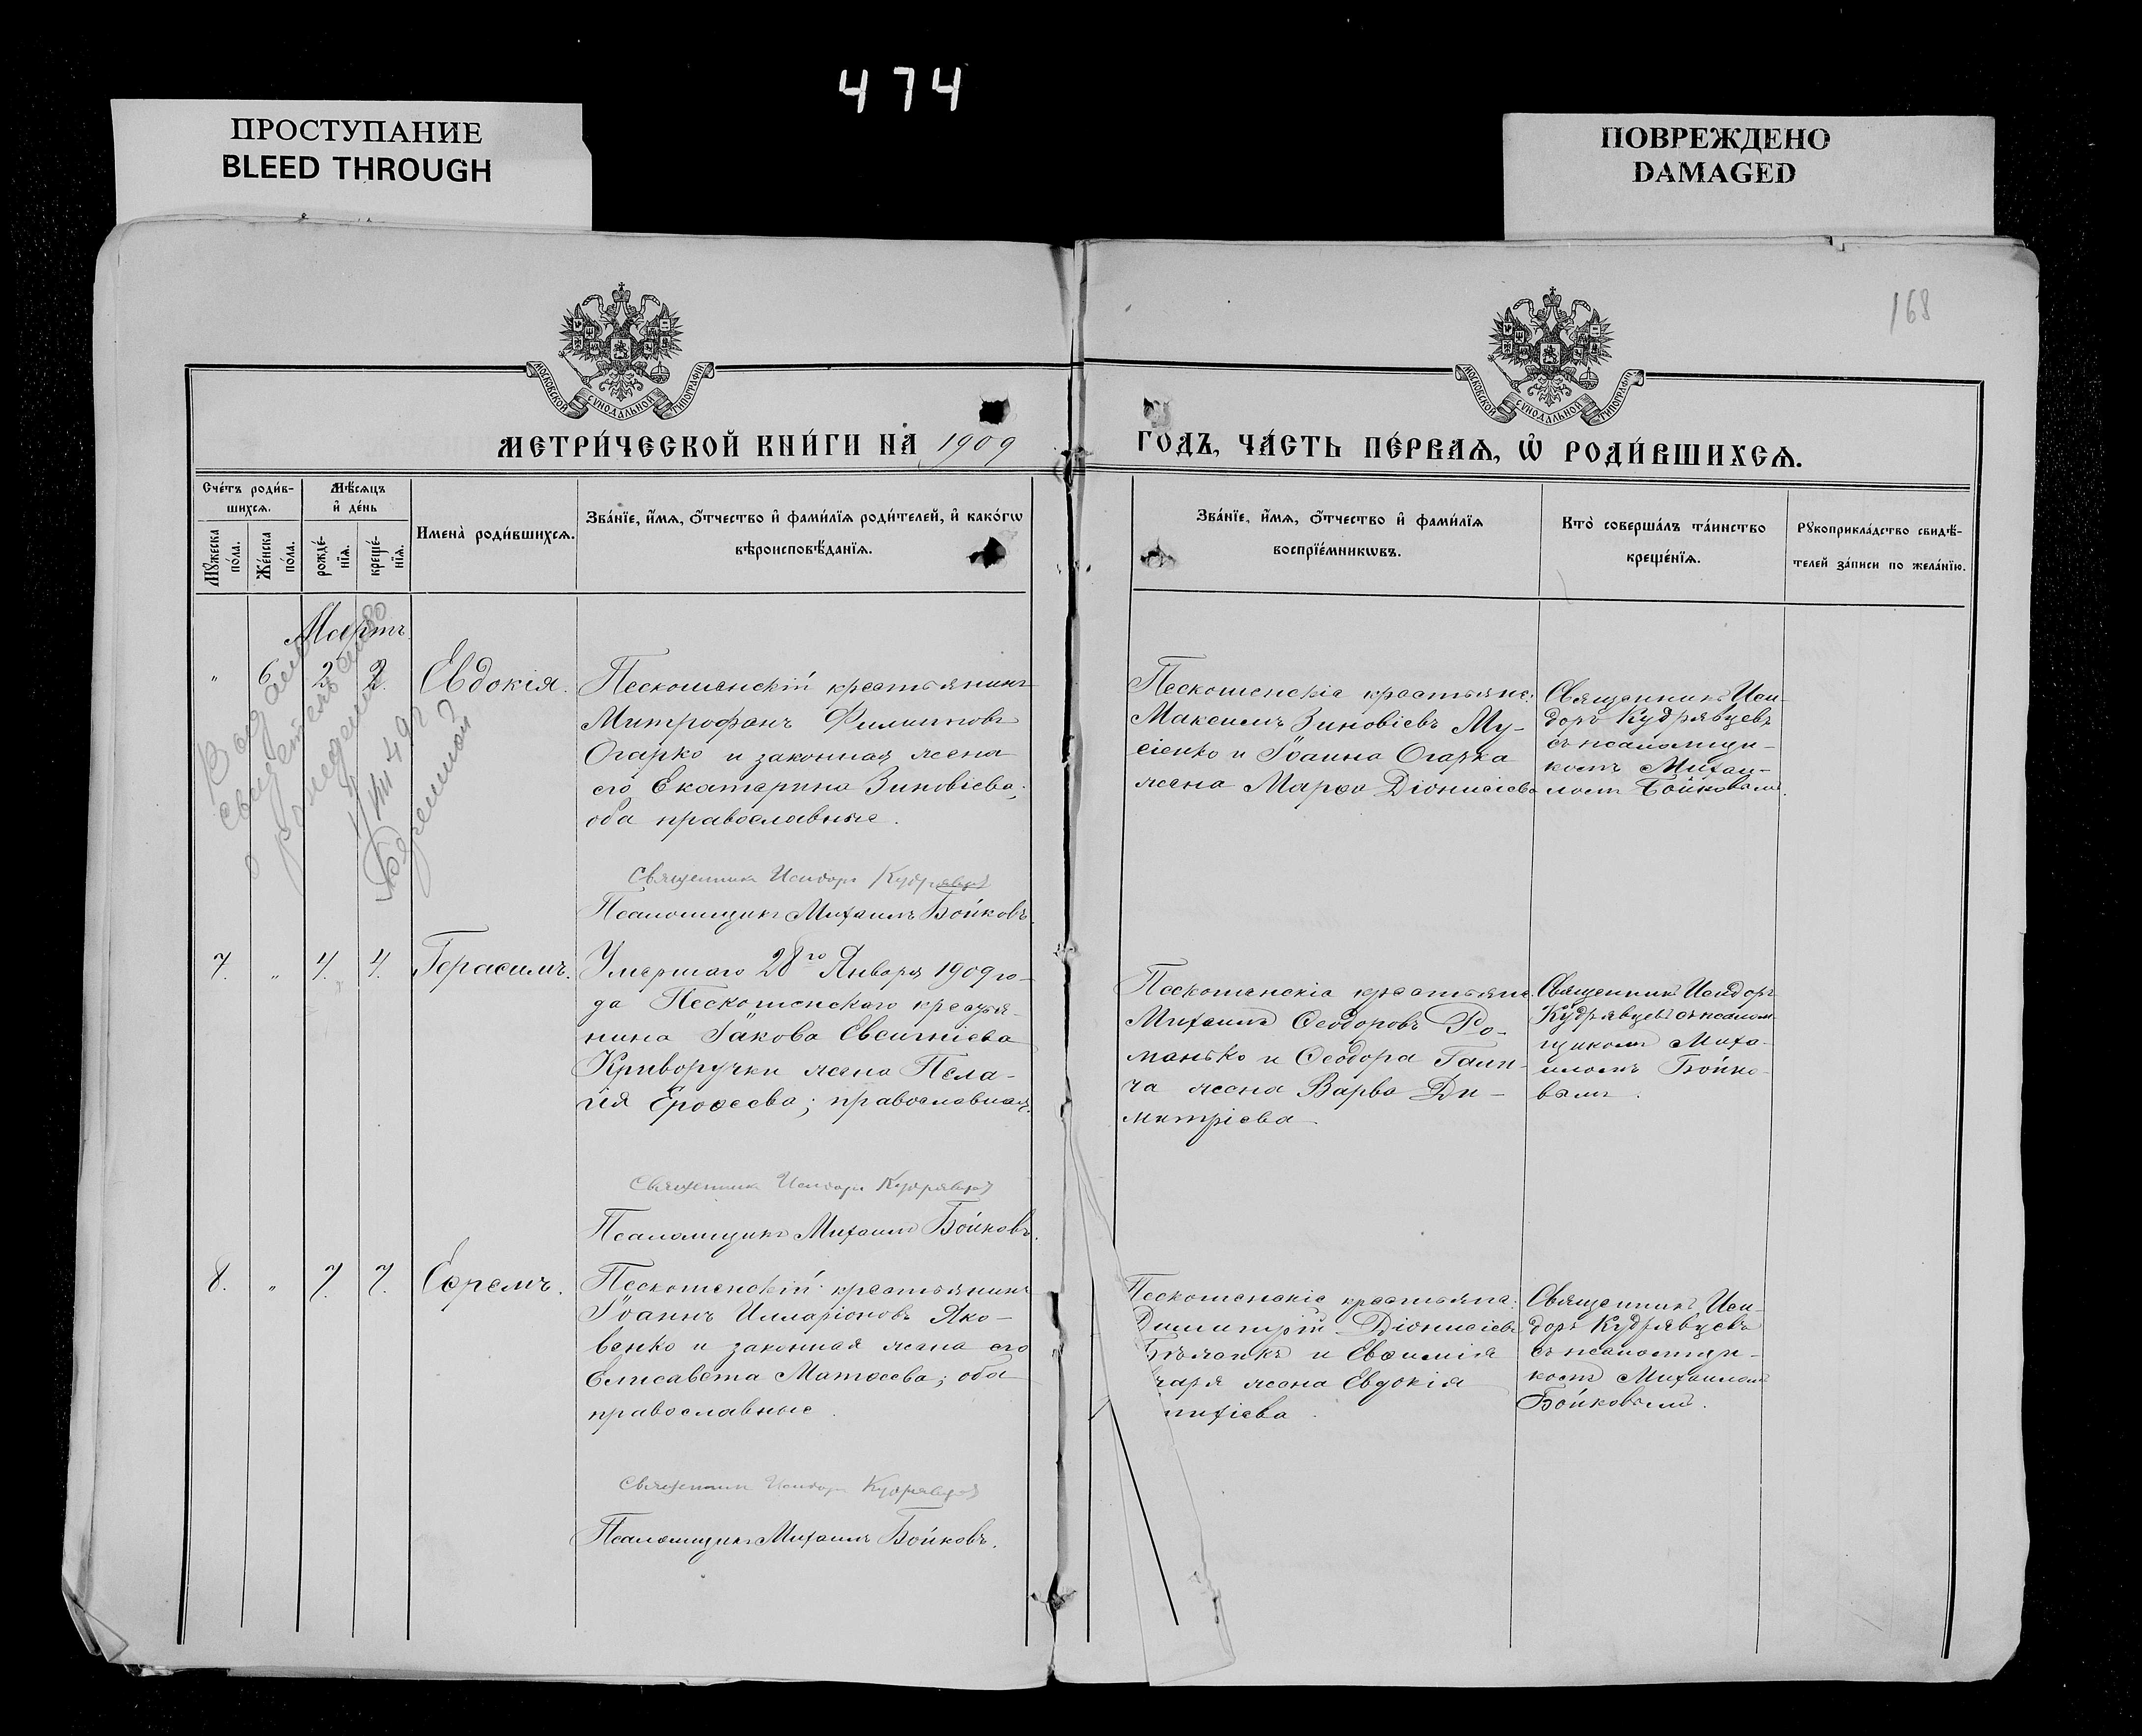 474
ПРОСТУПАНИЕ
BLEED THROUGH
ПОВРЕЖДЕНО
DAMAGED
168
МОСКОВСКОЙ СѴНОДАЛЬНОЙ ТИПОГРАФІИ
МОСКОВСКОЙ СѴНОДАЛЬНОЙ ТИПОГРАФІИ
МЕТРИ́ЧЕСКОЙ КНИ́ГИ НА̀ 1909
ГО́ДЪ, ЧА́СТЬ ПЕ́РВАѦ, Ѡ҆ РОДИ́ВШИХСѦ.
Сче́тъ роди́в-
шихсѧ.
Мꙋ́жеска
по́ла.
Же́нска
по́ла.
Мѣ́сѧцъ
и҆ де́нь
рожде́-
нїѧ.
креще́-
нїѧ.
Имена̀ роди́вшихсѧ.
Зва́нїе, и҆́мѧ, ѻ҆́тчество и҆ фами́лїѧ роди́телей, и҆ како́гѡ
вѣроисповѣ́данїѧ.
Зва́нїе, и҆́мѧ, ѻ҆́тчество и҆ фами́лїѧ
воспрїе́мникѡвъ.
Кто̀ соверша́лъ та́инство
креще́нїѧ.
Рꙋкоприкла́дство свидѣ́-
телей за́писи по жела́нїю.
Мартъ.
" 6. 2. 2. Евдокія.
Пескошенскій крестьянинъ
Митрофанъ Филиповъ
Огарко и законная жена
его Екатерина Зиновіева;
оба православные.
Священник Исидоръ Кудрявцев
Псаломщикъ Михаилъ Бойковъ.
Пескошенскіе крестьяне:
Максимъ Зиновіевъ Му-
сіенко и Іоанна Огарка
жена Марѳа Діонисіева
Священникъ Иси-
доръ Кудрявцевъ
съ псаломщи-
комъ Михаи-
ломъ Бойковымъ.
7. " 4. 4. Герасимъ.
Умершаго 28го Января 1909 го-
да Пескошенскаго крестья-
нина Іакова Евсигніева
Криворучки жена Пела-
гія Ероѳеева; православная.
Священник Исидоръ Кудрявцев
Псаломщикъ Михаилъ Бойковъ.
Пескошенскіе крестьяне
Михаилъ Ѳеодоровъ Ро-
манько и Ѳеодора
жена Варва Ди-
митріева
Священникъ Исидоръ
Кудрявцевъ съ псалом-
щикомъ Миха-
иломъ Бойко-
вымъ.
8. " 7. 7. Ефремъ.
Пескошенскій крестьянинъ
Іоаннъ Илларіоновъ Яко-
венко и законная жена его
Елисавета Матѳеева; оба
православные.
Священник Исидоръ Кудрявцев
Псаломщикъ Михаилъ Бойковъ.
Пескошенскіе крестьяне:
Димитрій Діонисіевъ
и Евѳимія
жена Евдокія
Священникъ Иси-
доръ Кудрявцевъ
съ псаломщи-
комъ Михаиломъ
Бойковымъ.